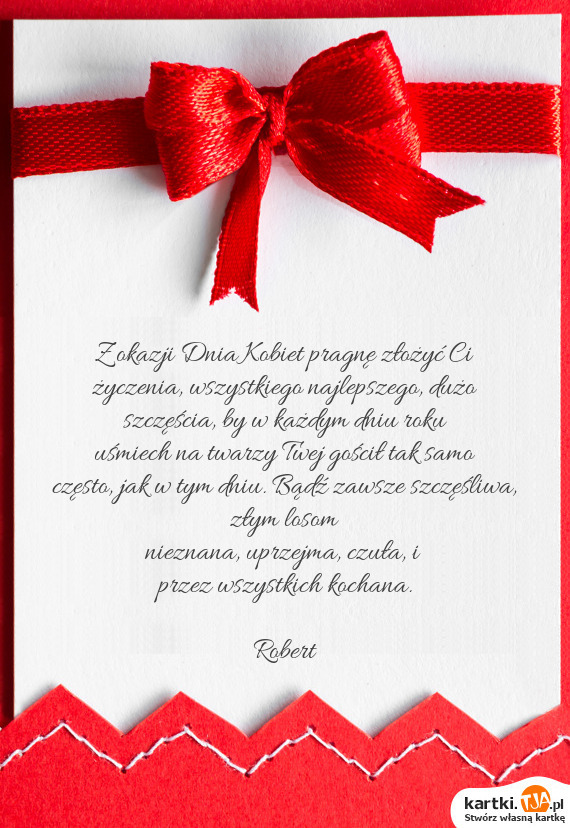 Z okazji Dnia Kobiet pragnę złożyć Ci
życzenia, wszystkiego najlepszego, dużo
szczęścia, by w każdym dniu roku
uśmiech na twarzy Twej gościł tak samo
często, jak w tym dniu. Bądź zawsze szczęśliwa,
złym losom
nieznana, uprzejma, czuła, i
przez wszystkich kochana.
Robert
kartki.TJA.pl
Stwórz własną kartkę